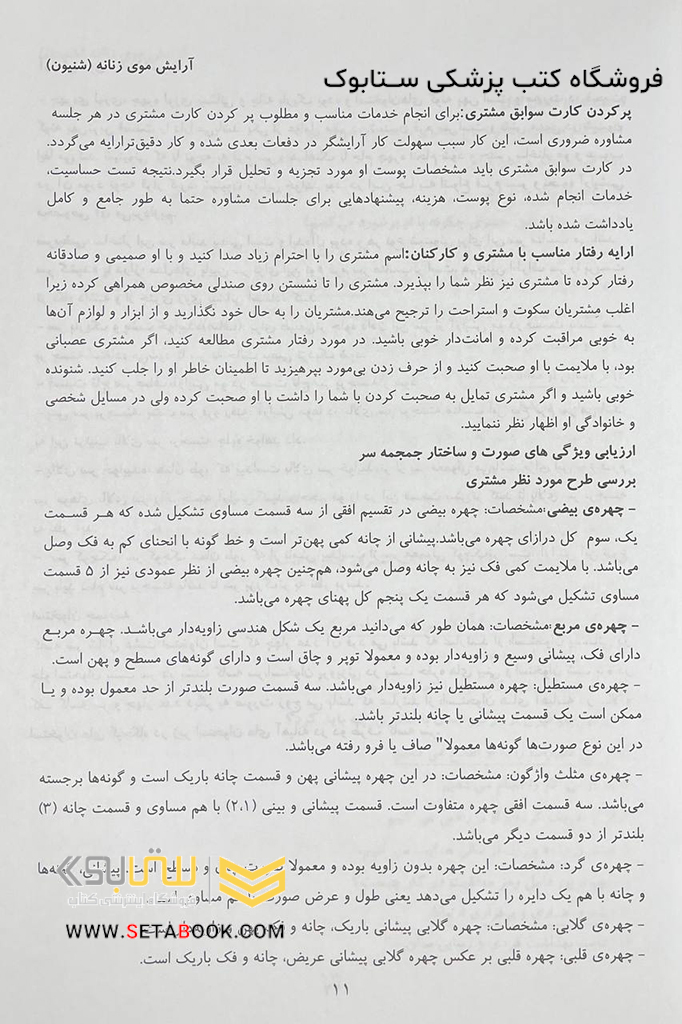 آرایش موی زنانه (شنیون)
فروشگاه کتب پزشکی ستابوک
پر کردن کارت سوابق مشتری:برای انجام خدمات مناسب و مطلوب پر کردن کارت مشتری در هر جلسه
مشاوره ضروری است، این کار سبب سهولت کار آرایشگر در دفعات بعدی شده و کار دقیق‌ترارایه می‌گردد.
در کارت سوابق مشتری باید مشخصات پوست او مورد تجزیه و تحلیل قرار بگیرد.نتیجه تست حساسیت،
خدمات انجام شده، نوع پوست، هزینه، پیشنهادهایی برای جلسات مشاوره حتما به طور جامع و کامل
یادداشت شده باشد.
ارایه رفتار مناسب با مشتری و کارکنان:اسم مشتری را با احترام زیاد صدا کنید و با او صمیمی و صادقانه
رفتار کرده تا مشتری نیز نظر شما را بپذیرد. مشتری را تا نشستن روی صندلی مخصوص همراهی کرده زیرا
اغلب مِشتریان سکوت و استراحت را ترجیح می‌هند.مشتریان را به حال خود نگذارید و از ابزار و لوازم آن‌ها
به خوبی مراقبت کرده و امانت‌دار خوبی باشید. در مورد رفتار مشتری مطالعه کنید، اگر مشتری عصبانی
بود، با ملایمت با او صحبت کنید و از حرف زدن بی‌مورد بپرهیزید تا اطمینان خاطر او را جلب کنید. شنونده
خوبی باشید و اگر مشتری تمایل به صحبت کردن با شما را داشت با او صحبت کرده ولی در مسایل شخصی
و خانوادگی او اظهار نظر ننمایید.
ارزیابی ویژگی های صورت و ساختار جمجمه سر
بررسی طرح مورد نظر مشتری
- چهره‌ی بیضی:مشخصات: چهره بیضی در تقسیم افقی از سه قسمت مساوی تشکیل شده که هر قسمت
یک، سوم کل درازای چهره می‌باشد.پیشانی از چانه کمی پهن‌تر است و خط گونه با انحنای کم به فک وصل
می‌باشد. با ملایمت کمی فک نیز به چانه وصل می‌شود، هم‌چنین چهره بیضی از نظر عمودی نیز از ۵ قسمت
مساوی تشکیل می‌شود که هر قسمت یک پنجم کل پهنای چهره می‌باشد.
- چهره‌ی مربع:مشخصات: همان طور که می‌دانید مربع یک شکل هندسی زاویه‌دار می‌باشد. چهره مربع
دارای فک، پیشانی وسیع و زاویه‌دار بوده و معمولا توپر و چاق است و دارای گونه‌های مسطح و پهن است.
- چهره‌ی مستطیل: چهره مستطیل نیز زاویه‌دار می‌باشد. سه قسمت صورت بلندتر از حد معمول بوده و یا
ممکن است یک قسمت پیشانی یا چانه بلندتر باشد.
در این نوع صورت‌ها گونه‌ها معمولا" صاف یا فرو رفته می‌باشد.
- چهره‌ی مثلث واژگون: مشخصات: در این چهره پیشانی پهن و قسمت چانه باریک است و گونه‌ها برجسته
می‌باشد. سه قسمت افقی چهره متفاوت است. قسمت پیشانی و بینی (۲،۱) با هم مساوی و قسمت چانه (۳)
بلندتر از دو قسمت دیگر می‌باشد.
- چهره‌ی گرد: مشخصات: این چهره بدون زاویه بوده و معمولا صورت پهن و مسطح است. پیشانی، گونه‌ها
و چانه با هم یک دایره را تشکیل می‌دهد یعنی طول و عرض صورت با هم مساوی
- چهره‌ی گلابی: مشخصات: چهره گلابی پیشانی باریک، چانه و
- چهره‌ی قلبی: چهره قلبی بر عکس چهره گلابی پیشانی عریض، چانه و فک باریک است.
ستابوک
فروشگاه اینترنتی کتاب
WWW.SETABOOK.COM
۱۱